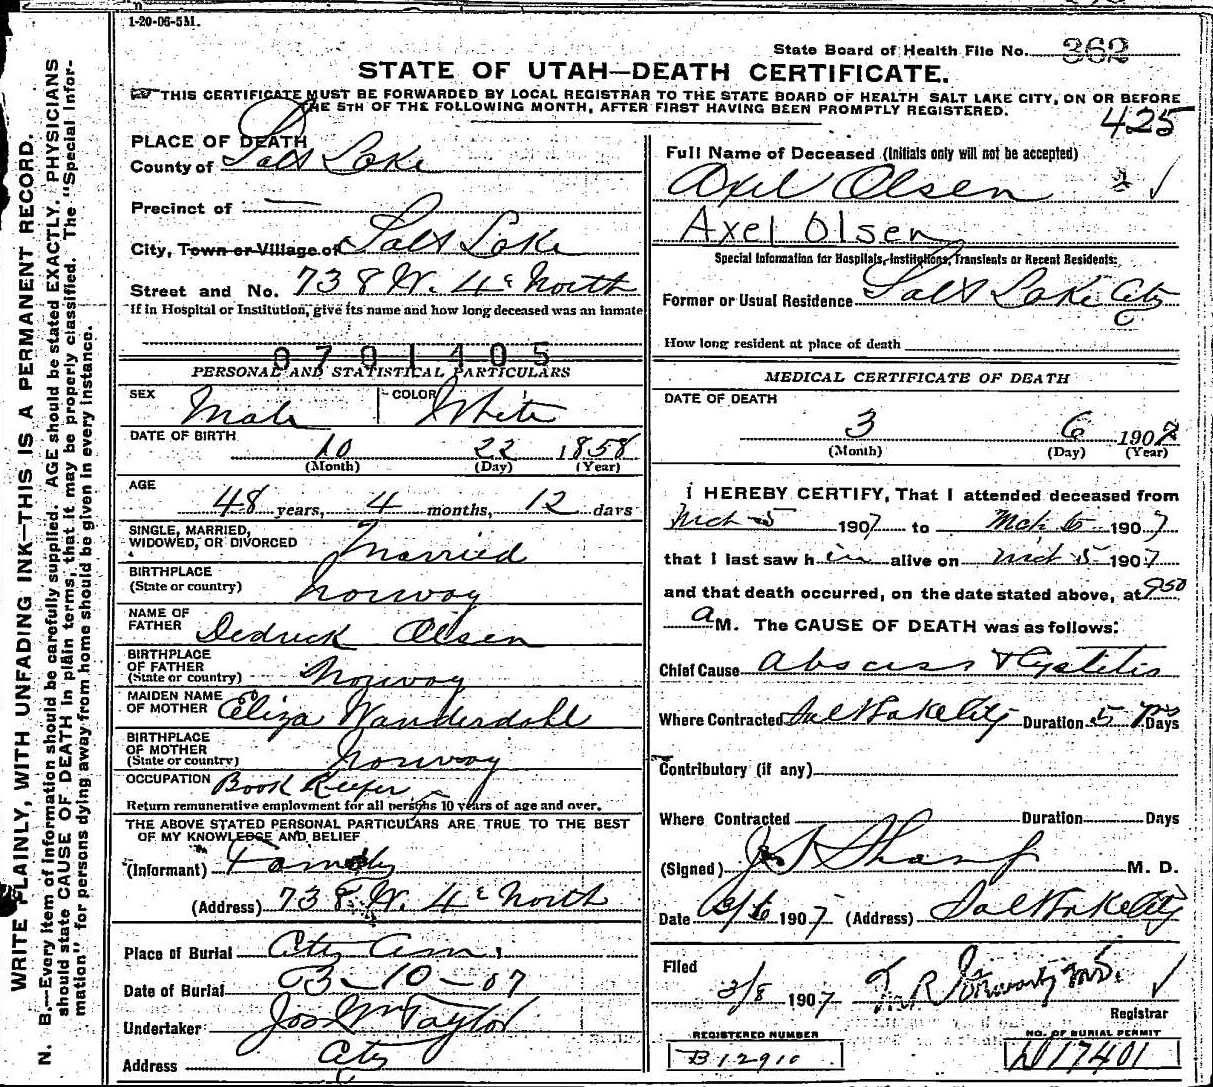 1-20-06-5M.
State Board of Health File No. 362
STATE OF UTAH—DEATH CERTIFICATE.
THIS CERTIFICATE MUST BE FORWARDED BY LOCAL REGISTRAR TO THE STATE BOARD OF HEALTH SALT LAKE CITY, ON OR BEFORE
THE 5TH OF THE FOLLOWING MONTH, AFTER FIRST HAVING BEEN PROMPTLY REGISTERED.
425
WRITE PLAINLY, WITH UNFADING INK—THIS IS A PERMANENT RECORD.
N. B.—Every item of information should be carefully supplied. AGE should be stated EXACTLY. PHYSICIANS
should state CAUSE OF DEATH in plain terms, that it may be properly classified. The "Special Infor-
mation" for persons dying away from home should be given in every instance.
PLACE OF DEATH
County of Salt Lake
Precinct of —
City, Town or Village of Salt Lake
Street and No. 738 W. 4th North
If in Hospital or Institution, give its name and how long deceased was an inmate
0701405
PERSONAL AND STATISTICAL PARTICULARS
SEX Male COLOR White
DATE OF BIRTH 10 22 1858
(Month) (Day) (Year)
AGE
48 years, 4 months, 12 days
SINGLE, MARRIED,
WIDOWED, OR DIVORCED Married
BIRTHPLACE
(State or country) Norway
NAME OF
FATHER Dedrick Olsen
BIRTHPLACE
OF FATHER
(State or country) Norway
MAIDEN NAME
OF MOTHER Eliza Wanderdahl
BIRTHPLACE
OF MOTHER
(State or country) Norway
OCCUPATION Book Keeper
Return remunerative employment for all persons 10 years of age and over.
THE ABOVE STATED PERSONAL PARTICULARS ARE TRUE TO THE BEST
OF MY KNOWLEDGE AND BELIEF
(Informant) Family
(Address) 738 W. 4th North
Place of Burial City Cem.
Date of Burial 3-10-07
Undertaker Jos Wm Taylor
Address City
Full Name of Deceased (Initials only will not be accepted)
Axel Olsen
Axel Olsen
Special Information for Hospitals, Institutions, Transients or Recent Residents:
Former or Usual Residence Salt Lake City
How long resident at place of death
MEDICAL CERTIFICATE OF DEATH
DATE OF DEATH
3 6 1907
(Month) (Day) (Year)
I HEREBY CERTIFY, That I attended deceased from
Mch 5 1907 to Mch 6 1907
that I last saw him alive on Mch 5 1907
and that death occurred, on the date stated above, at 950
a M. The CAUSE OF DEATH was as follows:
Chief Cause abscess & Cystitis
Where Contracted Salt Lake City Duration 5 yrs Days
Contributory (if any)
Where Contracted Duration Days
(Signed) Sharp M. D.
Date 3/6 1907 (Address) Salt Lake City
Filed
3/8 1907
Registrar
REGISTERED NUMBER
B12910
NO. OF BURIAL PERMIT
D17401